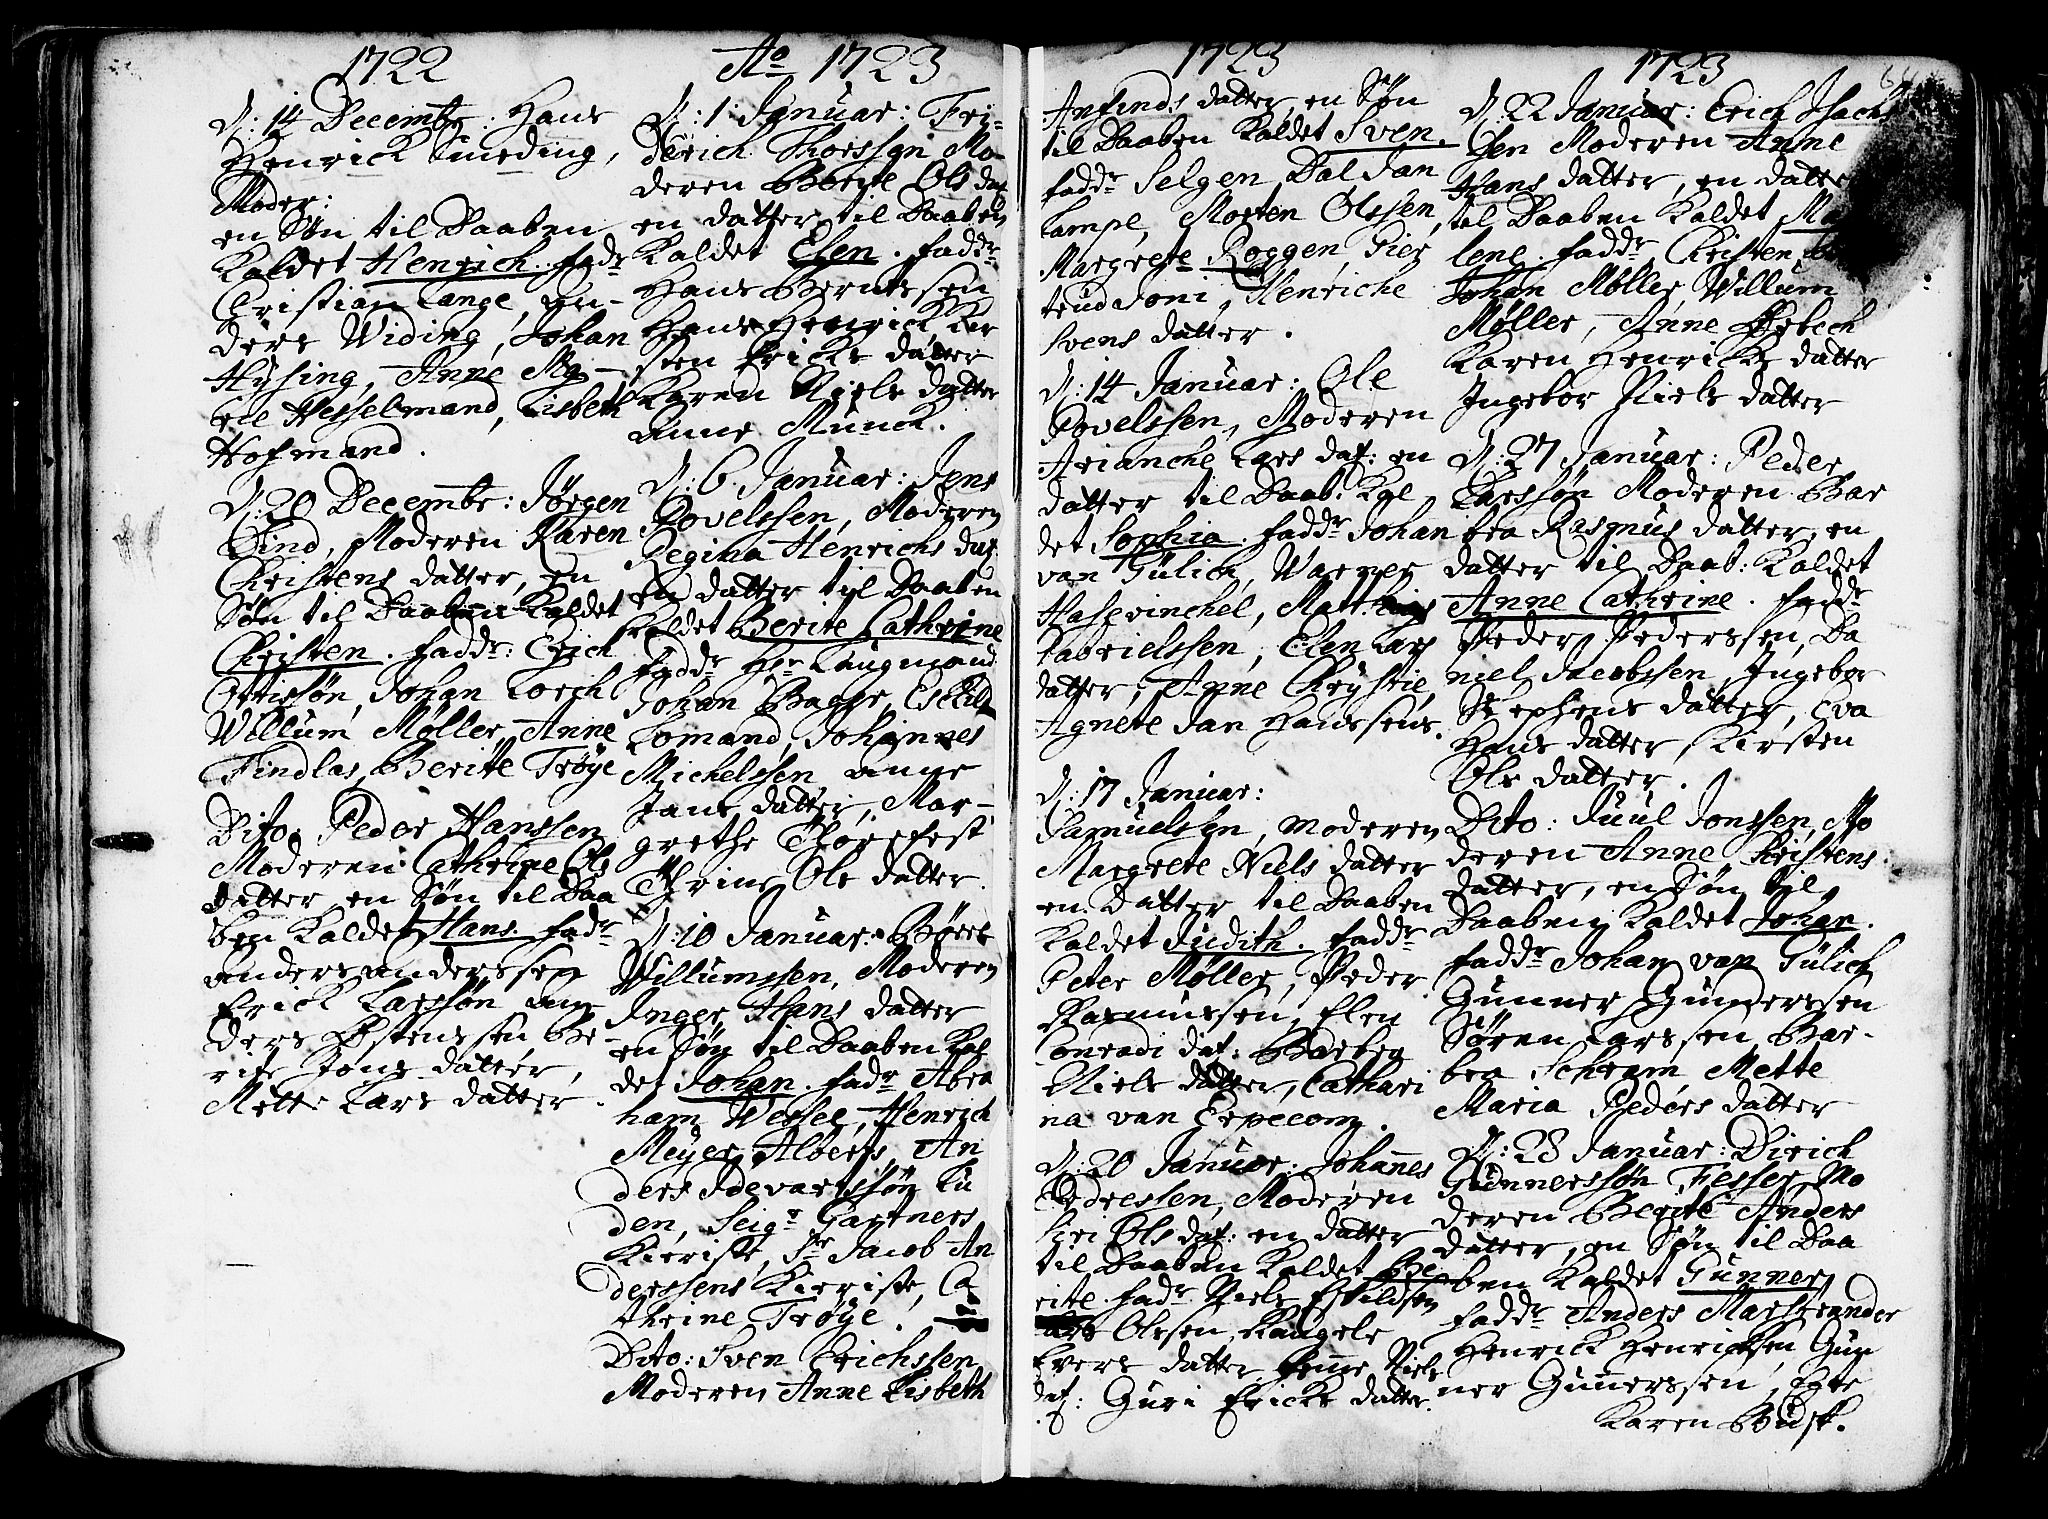 1722
D: 14 Decembr: Hans
Henrick Smeding,
Moder:
en Søn til Daaben
Kaldet Henrich. fadr
Christian Lange, An-
ders Widing, Johan
Hysing, Anne Ma-
Hesselmand, Lisbeth
Hofmand.
D: 20 Decembr: Jörgen
Lind, Moderen Karen
Christens datter, en
Søn til Daaben Kaldet
Christen. faddr: Erich
Ottissøn, Johan Lorch
Willum Møller, Anne
Findlas, Berite Trøye
Dito. Peder Hanssen
Moderen Cathrine Ols
datter, en Søn til Daa
ben Kaldet Hans. fadr
Anders Anderssen
Erick Larssøn An-
ders Østenssen Be-
rite Jons datter,
Mette Lars datter.
Ao 1723
D: 1. Januar: Fri-
derich Thorssen Mo-
deren Berte Ols dat
en datter til Daaben
Kaldet Elen. faddr
Hans Berntssen
Hans Henrick Kar
sten Ericks datter
Karen Niels datter
Anne Munck.
D: 6. Januar: Jens
Povelssen, Moderen
Regina Henrichs dat
en datter til Daaben
Kaldet Berite Cathrine
Faddr Hr Laugmand
Johan Bager, Eskild
Lomand, Johannes
Michelssen Anne
Jans datter, Mar-
grethe Thorefest
Thrine Ols datter.
D: 10 Januar: Börre
Willumssen, Moderen
Inger Hans datter
en Søn til Daaben Kal
det Johan. fadr Abra
ham Wessel, Henrich
Meyer Alberts, An
ders Idevartssøn Lu
den, Seigr Gartners
Kieriste, Sr Jacob An
derssens Kieriste, Ca
thrine Trøye.
Dito: Sven Erichssen
Moderen Anne Lisbeth
1723
Anfinds datter, en Søn
til Daaben Kaldet Sven.
faddr Selgen Dal Jan
Lampe, Morten Olssen,
Margrete Roggen, Gier
trud Joni, Henriche
Svens datter.
D: 14 Januar: Ole
Povelssen, Moderen
Arianche Lars dat: en
datter til Daab: Kal
det Sophia. faddr Johan
van Gülich, Warner
Hasevinchel, Matthias
Gabrielssen, Elen Lars
datter, Anne Chrystie,
Agnete Jan Hanssens.
D: 17 Januar:
Samuelsen, Moderen
Margrete Niels datter
en Datter til Daaben
Kaldet Judith. faddr
Peter Møller, Peder
Rasmussen, Elen
Conradi dat: Barbra
Niels datter, Cathari
na van Erpecom.
D: 20 Januar: Johannes
Andressen, Moderen
Siri Ols dat: en datter
til Daaben Kaldet Be
rite. fadr Niels Eskildsen
Lars Olssen, Raugele
Evers datter, Niels
dat: Guri Ericks datter.
1723
D: 22 Januar: Erich Isach
sen Moderen Anne
Hans datter, en datter
til Daaben Kaldet Ma
lene. faddr Christen
Johan Møller, Willum
Møller, Anne
Karen Henricks datter
Ingebor Niels datter
D: 27 Januar: Peder
Larssøn Moderen Bar
bra Rasmus datter, en
datter til Daab: Kaldet
Anne Cathrine. faddr
Peder Pederssen, Da
niel Jacobssen, Ingebor
Stephens datter, Eva
Hans datter, Kirsten
Ols datter.
Dito: Juul Jonssen, Mo
deren Anne Christens
datter, en Søn til
Daaben Kaldet Johan.
faddr Johan van Gülich
Gunner Gunderssen
Søren Larssen, Bar-
bra Schram, Mette
Maria Peders datter
D: 28 Januar: Dirich
Gunnerssøn Fesser, Mo
deren Berite Anders
datter, en Søn til Daa
ben Kaldet Gunner
faddr Anders Marstrander
Henrick Henrichsen Gun
ner Gunnerssen,
Karen Budst.